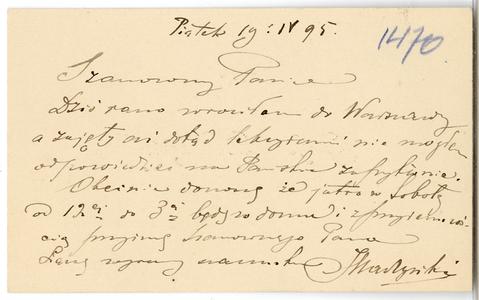 Piątek 19 IV 95.
1470
Szanowny Panie
Dziś rano wróciłem do Warszawy
a zajęty aż dotąd nie mogłem
odpowiedzieć na Pańskie zapytanie.
Obecnie donoszę że jutro w sobotę
od 12ej do 3ej będę w domu i z przyjemnoś-
cią przyjmę Szanownego Pana
Łączę wyrazy szacunku